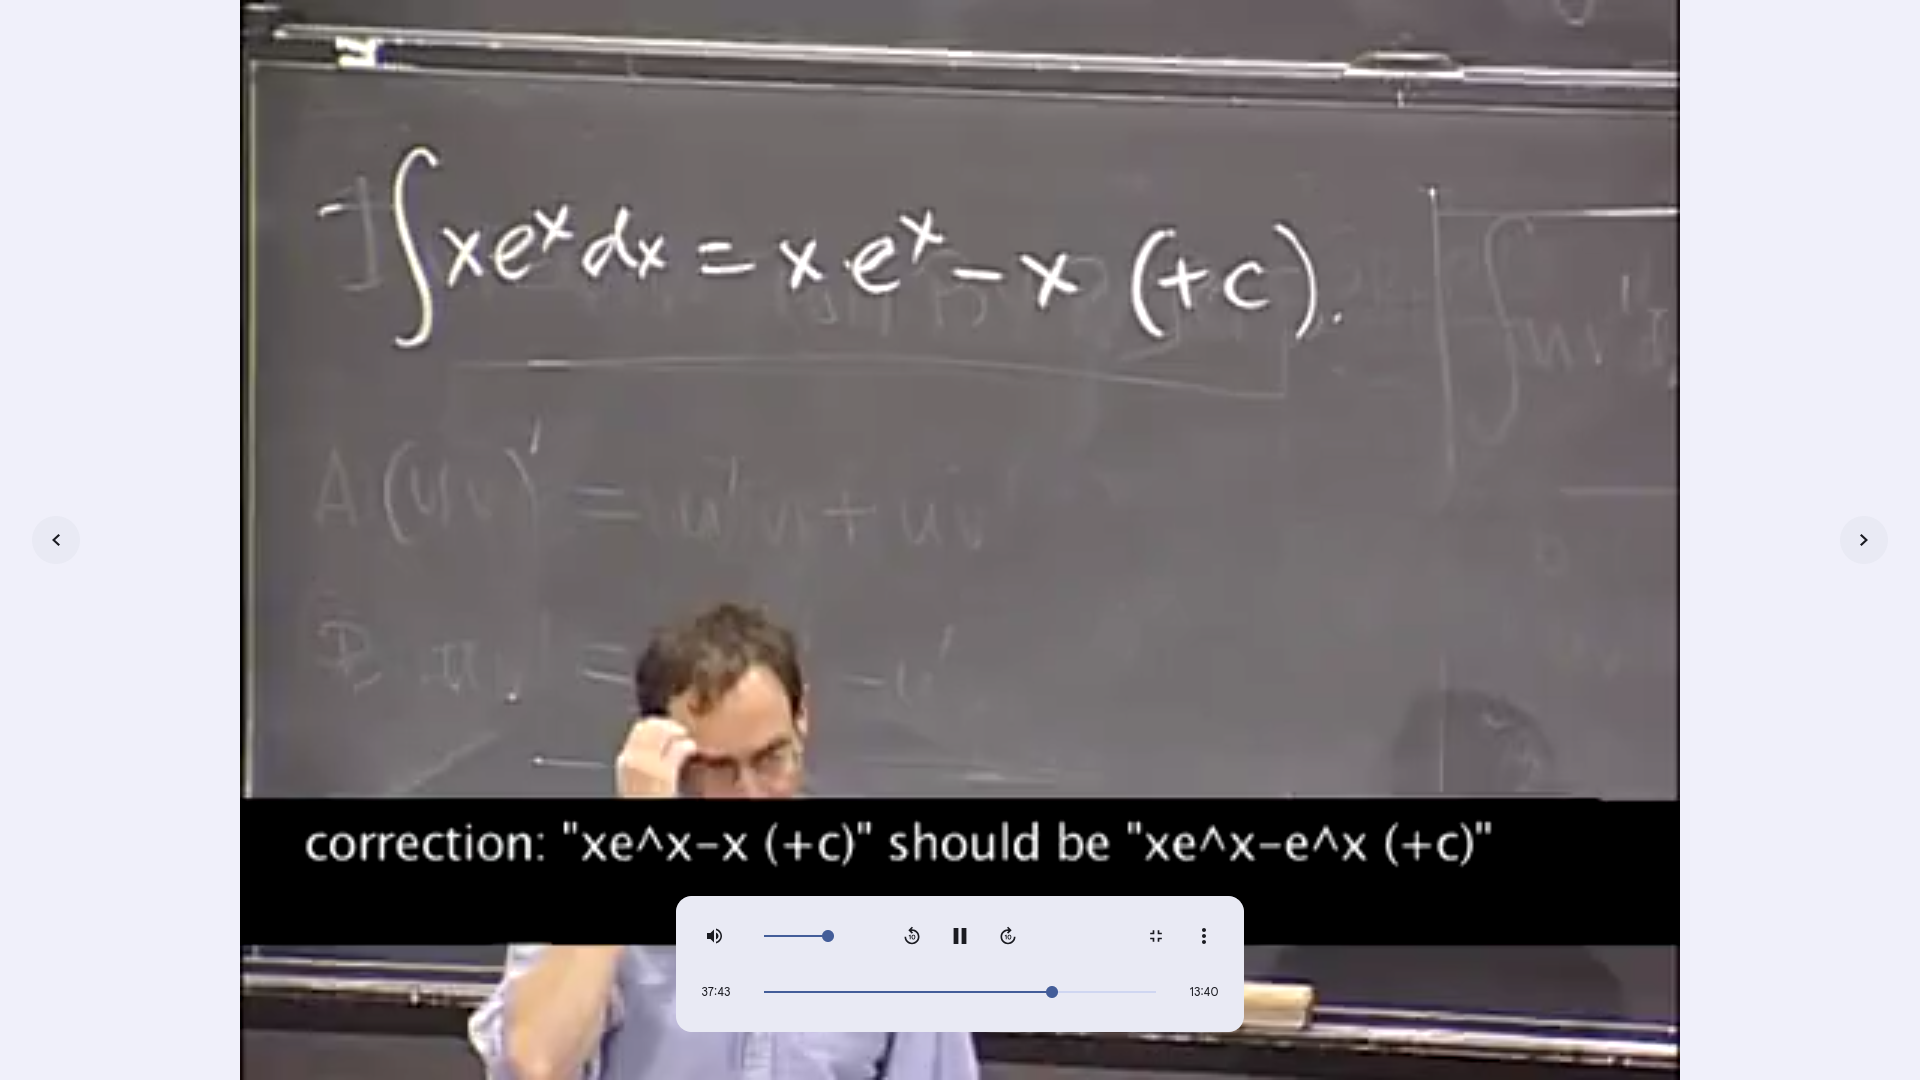 ∫xe^x dx = xe^x − x (+c).
A (uv)' = u'v + uv'
correction: "xe^x-x (+c)" should be "xe^x-e^x (+c)"
37:43
13:40